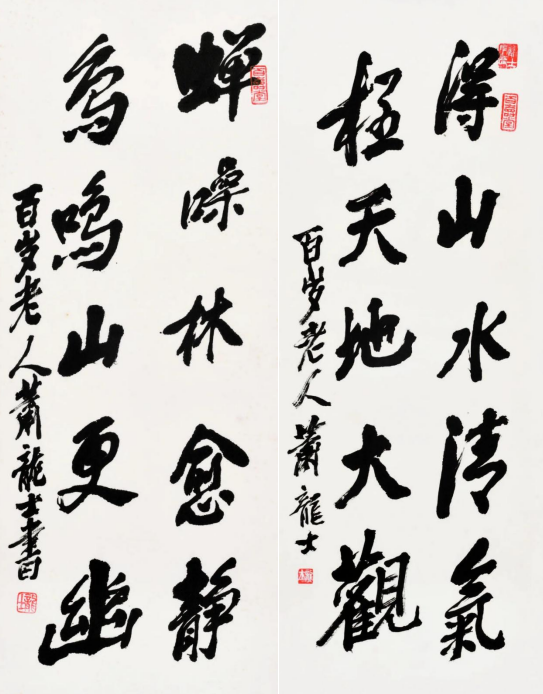 得山水清氣
極天地大觀
百岁老人蕭龍士
蟬噪林愈靜
鳥鳴山更幽
百岁老人蕭龍士書